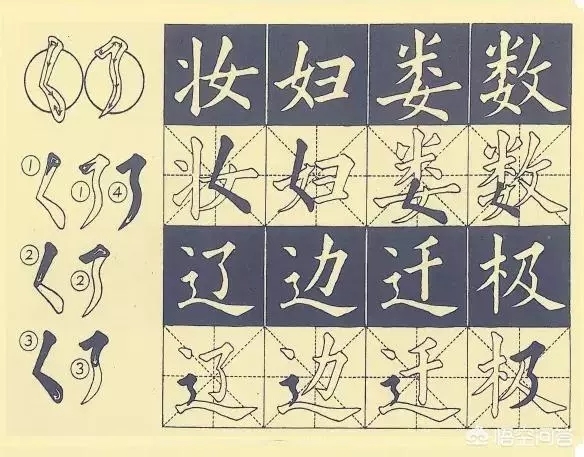 妆 妇 娄 数
① ① ④ 妆 妇 娄 数
② ② 辽 边 迁 极
③ ③ 辽 边 迁 极
悟空问答